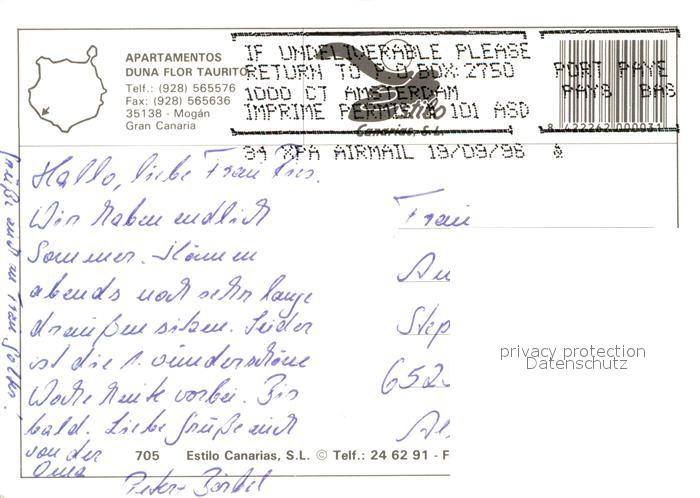 APARTAMENTOS
DUNA FLOR TAURITO
Telf.: (928) 565576
Fax: (928) 565636
35138 - Mogán
Gran Canaria
IF UNDELIVERABLE PLEASE
RETURN TO P.O BOX 2750
1000 CT AMSTERDAM
IMPRIME PERMIS 101 ASD
PORT PAYE
PAYS BAS
Estilo
Canarias, S.L.
8 422262 000031
94 XPA AIRMAIL 19/09/96
Hallo, liebe Frau
Wir haben endlich
Sommer. Können
abends noch sehr lange
draußen sitzen. Leider
ist die 1. wunderschöne
Woche heute vorbei. Bis
bald. Liebe Grüße auch
von der
Oma
Peter + Bärbel
Grüße auch an Frau
Frau
Step
652
privacy protection
Datenschutz
705 Estilo Canarias, S.L. © Telf.: 24 62 91 - F